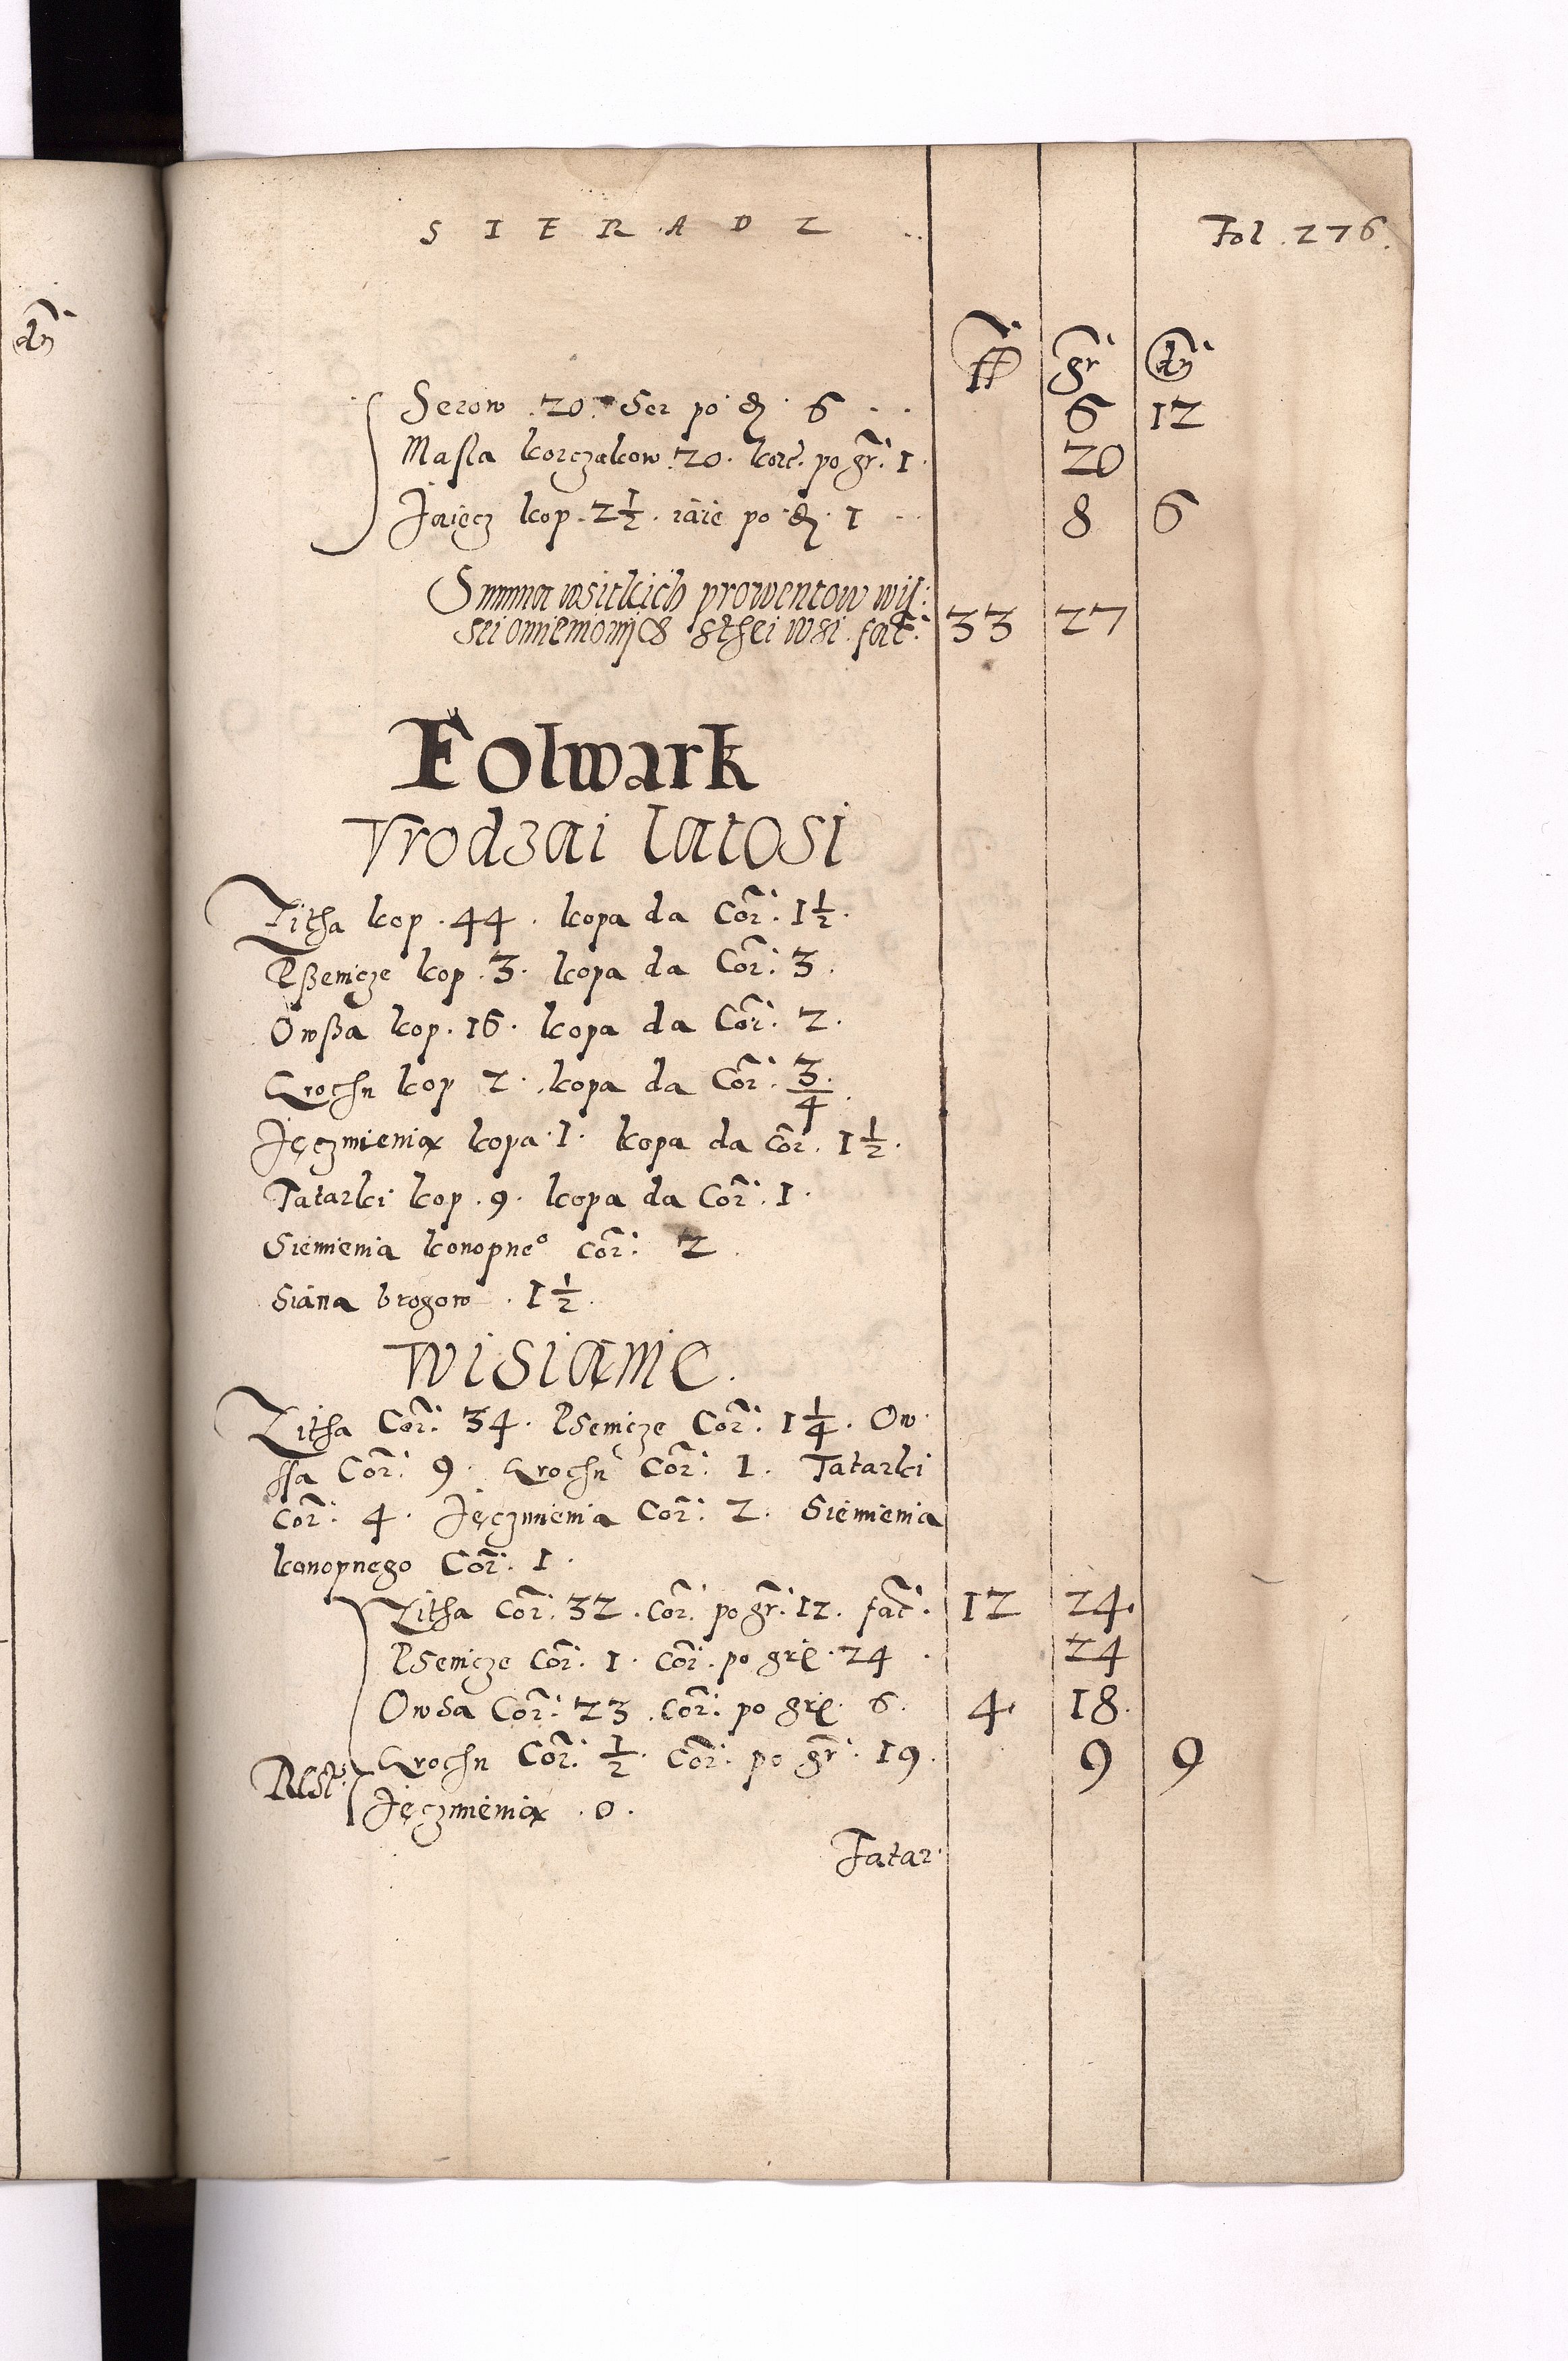 dn
SIERADZ
Fol. 276.
ff gr dn
Serow .20. Ser po d. 6 . . 6 12
Masla korczakow .20. korc. po gr. 1. 20
Jaiecz kop. 2 1/2. iaie po d. 1 8 6
Summa wsitkich prowentow wis:
sei omienionych s they wsi. fac: 33 27
Folwark
Vrodzai latosi
Zitha kop .44. kopa da Cor. 1 1/2.
Pßenicze kop .3. kopa da Cor: 3.
Owßa kop. 16. kopa da Cor: 2.
Grochu kop 2. kopa da Cor. 3/4.
Jęczmienia kopa. 1. kopa da Cor. 1 1/2.
Tatarki kop .9. kopa da Cor. 1.
Siemienia konopneo Cor: 2.
Siana brogow .1 1/2.
Wisianie.
Zitha Cor: 34. Psenicze Cor: 1 1/4. Ow
ssa Cor: 9. Grochu Cor: 1. Tatarki
Cor: 4. Jęczmienia Cor: 2. Siemienia
konopnego Cor. 1.
Zitha Cor. 32. Cor. po gr. 12. fac. 12 24.
Psenicze Cor. 1. Cor. po gr. 24 . 24
Owsa Cor. 23. Cor. po gr. 6. 4. 18.
Rest Grochu Cor. 1/2. Cor. po gr. 19. 9 9
Jęczmienia .0.
Tatar.